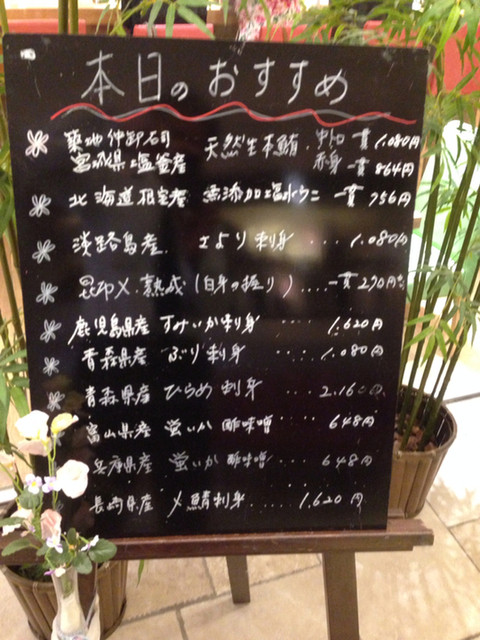 本日のおすすめ
築地仲卸石司 天然生本鮪 中トロ 一貫 1,080円
宮城県塩釜産 赤身 一貫 864円
北海道根室産 無添加塩水ウニ 一貫 756円
淡路島産 さより刺身 ... 1,080円
昆布〆熟成(白身の握り) .... 一貫 270円
鹿児島県産 すみいか刺身 .... 1,620円
青森県産 ぶり刺身 ..... 1,080円
青森県産 ひらめ刺身 .... 2,160円
富山県産 蛍いか酢味噌 .... 648円
兵庫県産 蛍いか酢味噌 .... 648円
長崎県産 〆鯖刺身 .... 1,620円